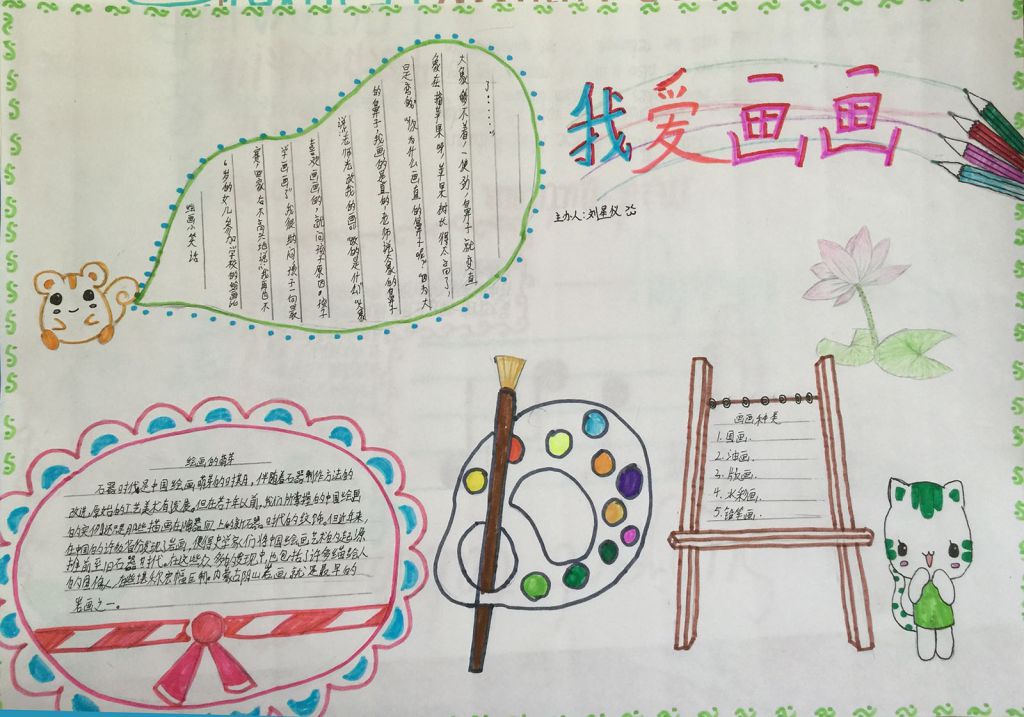 我爱画画
主办人:刘星仪
绘画小笑话
6岁的女儿参加学校的绘画比
赛,回家后不高兴地说:“我再也不
学画画了”我便问孩子一向最
喜欢画画的,就问孩子原因。孩子
说:“老师改我的画”“改的是什么”“大象
的鼻子,我画的是直的,老师说大象的鼻子
是弯的”“你为什么画直的鼻子呢?”“因为大
象在摘苹果呀,苹果树长得太高了,
大象够不着,一使劲,鼻子就变直
了……”
绘画的萌芽
石器时代是中国绘画萌芽的时期,伴随着石器制作方法的
改进,原始的工艺美术有发展。但在若干年以前,我们所掌握的中国绘画
的实例还是那些描画在陶器面上的新石器时代的纹饰。但近年来,
在中国的许多省份发现了岩画,使得史学家们将中国绘画艺术的起源
推前至旧石器时代。在这些众多的发现中也包括了许多描绘人
的肖像,有些堪称宏幅巨制。内蒙古阴山岩画就是最早的
岩画之一。
画画种类
1.国画.
2.油画.
3.版画.
4.水彩画.
5.铅笔画.